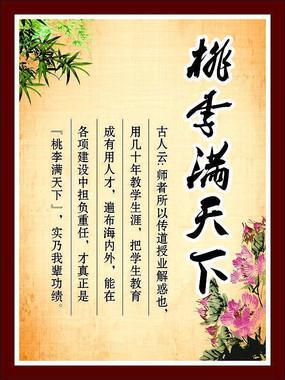 桃李满天下
古人云:师者所以传道授业解惑也,
用几十年教学生涯,把学生教育
成有用人才,遍布海内外,能在
各项建设中担负重任,才真正是
『桃李满天下』,实乃我辈功绩。